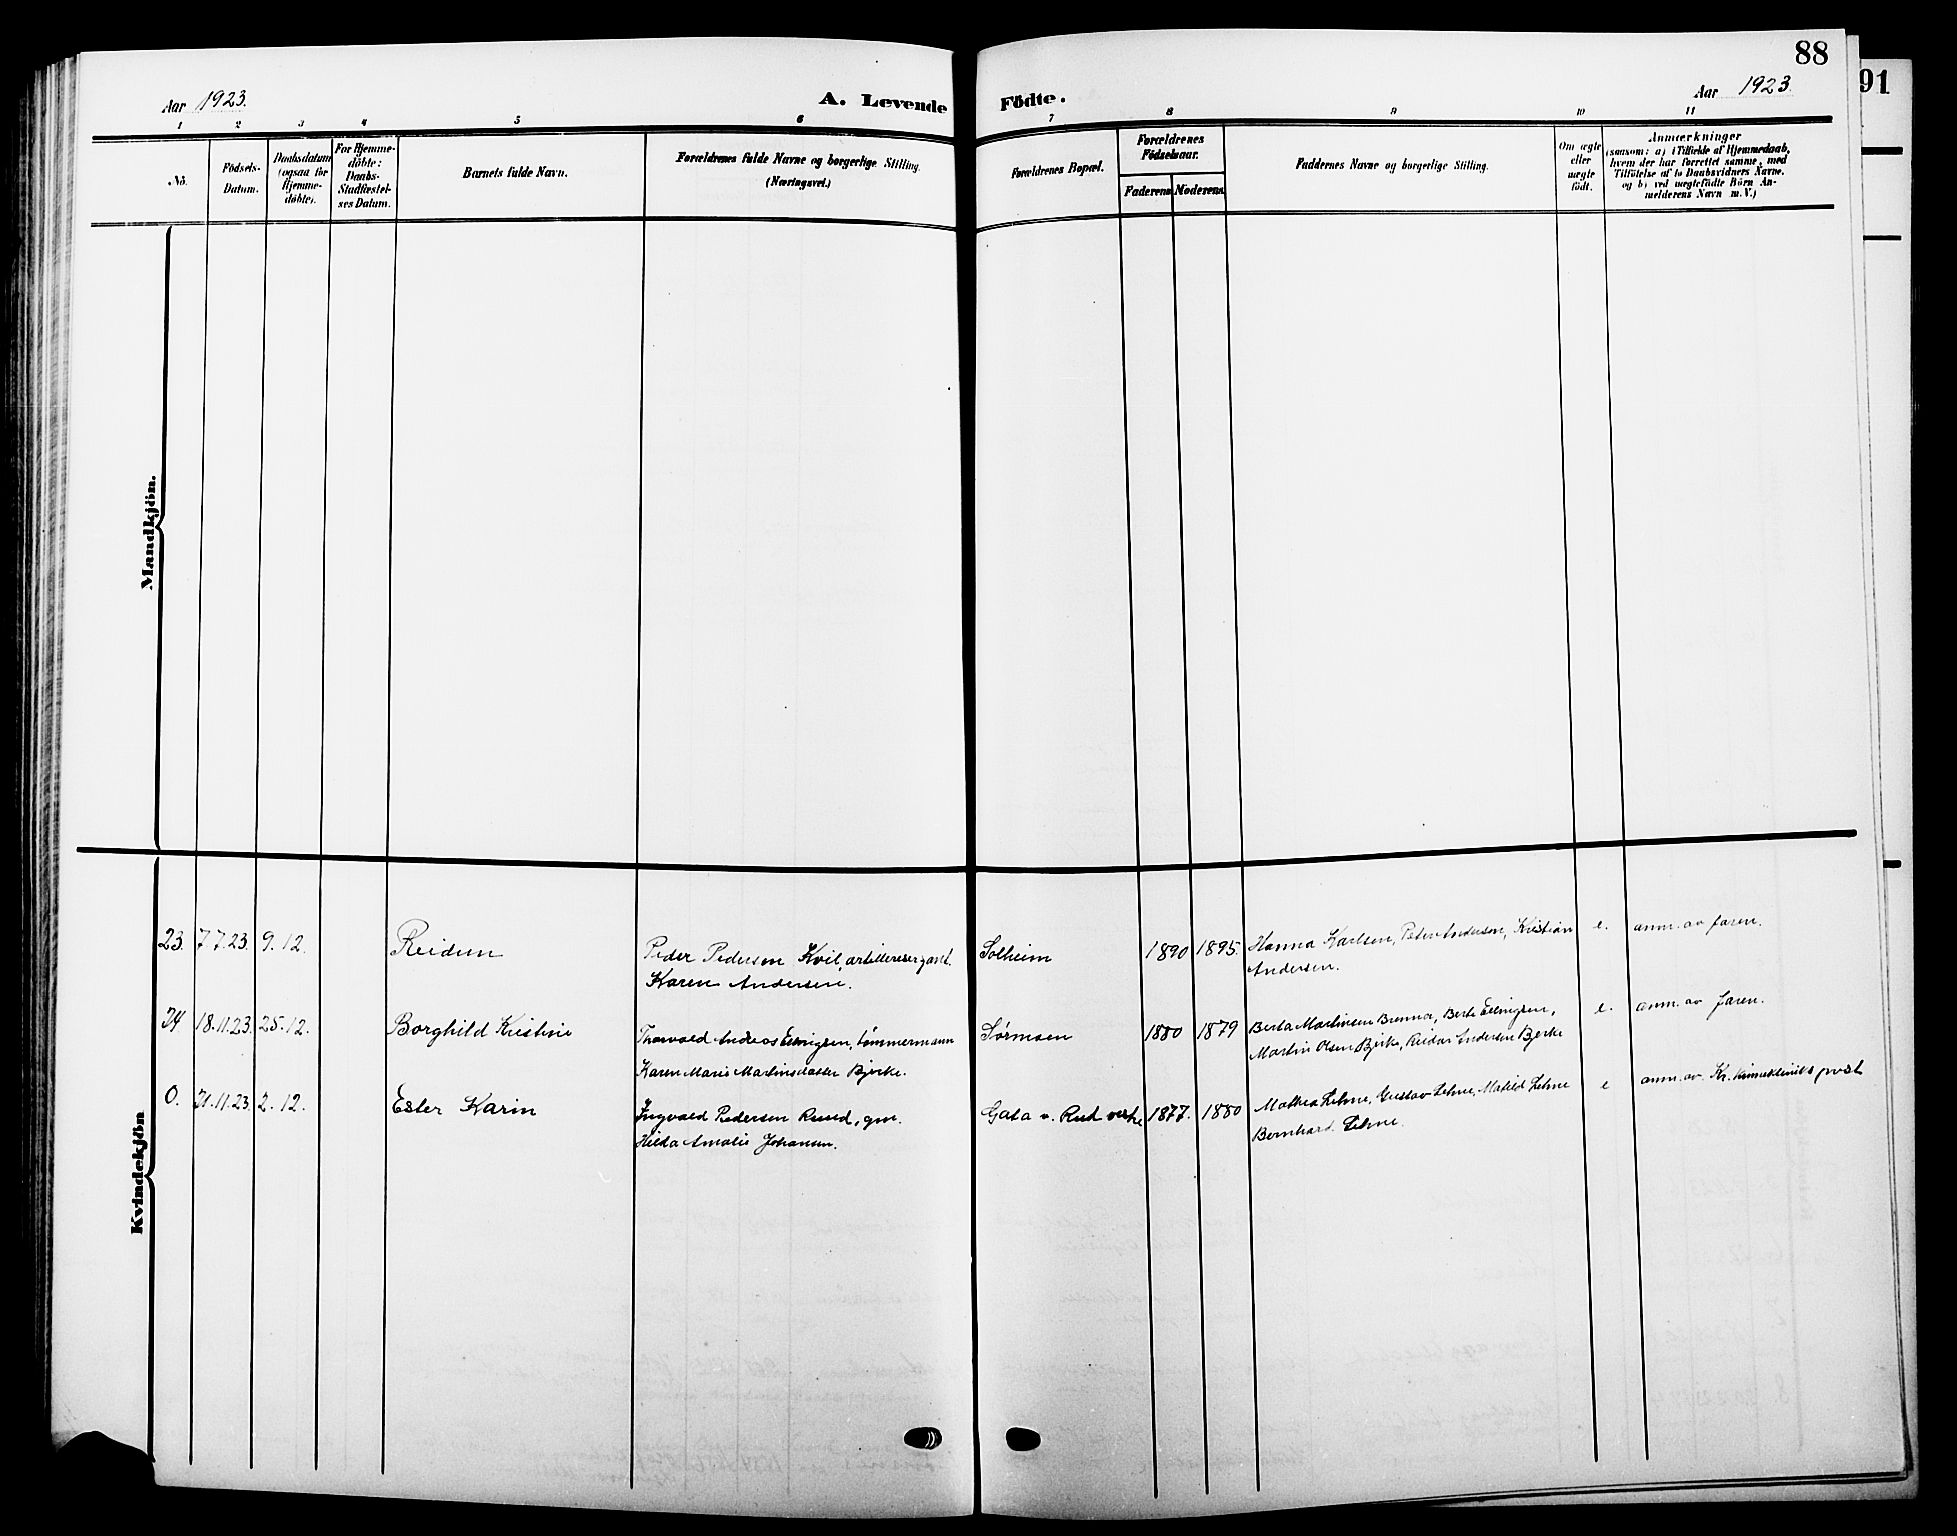 88
91
Aar 1923.
A. Levende
Födte.
Aar 1923
1 2 3 4 5 6 7 8 9 10 11
No.
Födsels-
Datum.
Daabsdatum
(ogsaa for
Hjemme-
döbte).
For Hjemme-
döbte:
Daabs-
Stadfæstel-
ses Datum.
Barnets fulde Navn.
Forældrenes fulde Navne og borgerlige Stilling.
(Næringsvei.)
Forældrenes Bopæl.
Forældrenes
Födselsaar.
Faderens. Moderens.
Faddernes Navne og borgerlige Stilling.
Om ægte
eller
uægte
födt.
Anmærkninger
(saasom: a) i Tilfælde af Hjemmedaab,
hvem der har forrettet samme, med
Tilföielse af to Daabsvidners Navne.
og b) ved uægtefödte Börn An-
melderens Navn m. V.)
Mandkjön.
Kvindekjön
23. 7 7.23. 9.12. Reidun Peder Pedersen Kvil, artillerisergant. Solheim 1890 1895. Hanna Karlsen, Peter Andersen, Kristian e. anm. av faren.
Karen Andersen. Andersen.
24 18.11.23. 25.12. Borghild Kristine Thorvald Andreas Ellingsen, tømmermann Sørmoen 1880 1879 Berta Martinsen Brenna, Berte Ellingsen, e. anm. av faren.
Karen Marie Martinsdatter Bjerke. Martin Olsen Bjerke, Reidar Andersen Bjerke
0. 21.11.23. 2.12. Ester Karin Ingvald Pedersen Ruud, gm. Gata v. Rud 1877. 1880 Mathea Lehne, Gustav Lehne, Matild Lehne e anm. av. Kr. kvinneklinikks prest
Hilda Amalie Johansen. Bernhard Lehne.